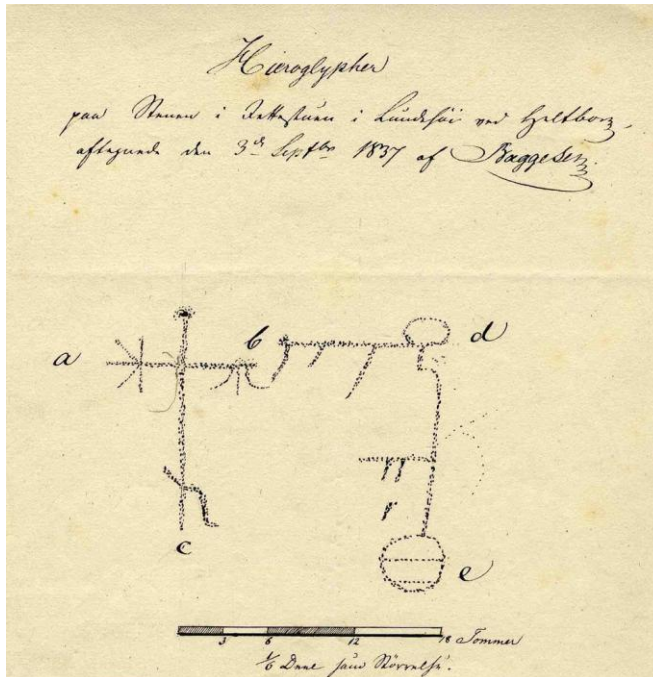 Hieroglypher
paa Stenen i Jettestuen i Lundehöi ved Heltborg,
aftegnede den 3die Septbr 1837 af Baggesen.
a
b
d
c
e
3 6 12 18 Tommer
1/6 Deel sand Störrelse.